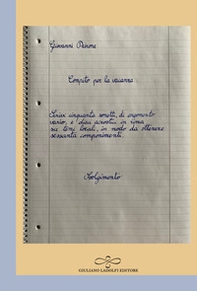 Giovanni Perrone
Compito per la vacanza
Scrivi cinquanta sonetti, di argomento
vario, e dieci acrostici in rima
su temi locali, in modo da ottenere
sessanta componimenti.
Svolgimento
GIULIANO LADOLFI EDITORE